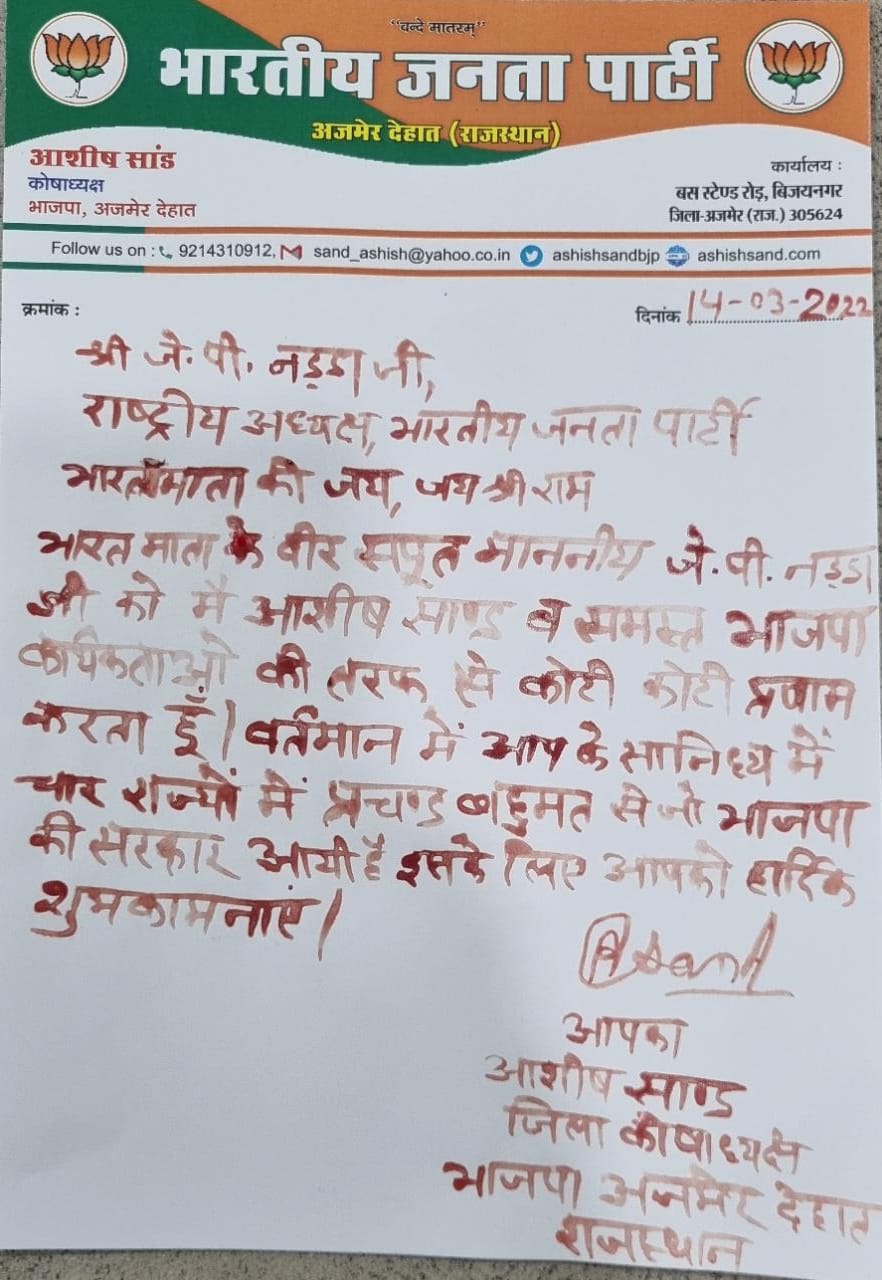 "वन्दे मातरम्"
भारतीय जनता पार्टी
अजमेर देहात (राजस्थान)
आशीष सांड
कोषाध्यक्ष
भाजपा, अजमेर देहात
कार्यालय :
बस स्टेण्ड रोड़, बिजयनगर
जिला-अजमेर (राज.) 305624
Follow us on : 9214310912, sand_ashish@yahoo.co.in ashishsandbjp ashishsand.com
क्रमांक :
दिनांक 14-03-2022
श्री जे. पी. नड्डा जी,
राष्ट्रीय अध्यक्ष, भारतीय जनता पार्टी
भारतमाता की जय, जय श्री राम
भारत माता के वीर सपूत माननीय जे. पी. नड्डा
जी को मै आशीष साण्ड व समस्त भाजपा
कार्यकताओ की तरफ से कोटी कोटी प्रणाम
करता हूँ। वर्तमान में आप के सानिध्य में
चार राज्यों में प्रचण्ड बहुमत से जो भाजपा
की सरकार आयी है इसके लिए आपको हार्दिक
शुभकामनाएं।
आपका
आशीष साण्ड
जिला कोषाध्यक्ष
भाजपा अजमेर देहात
राजस्थान